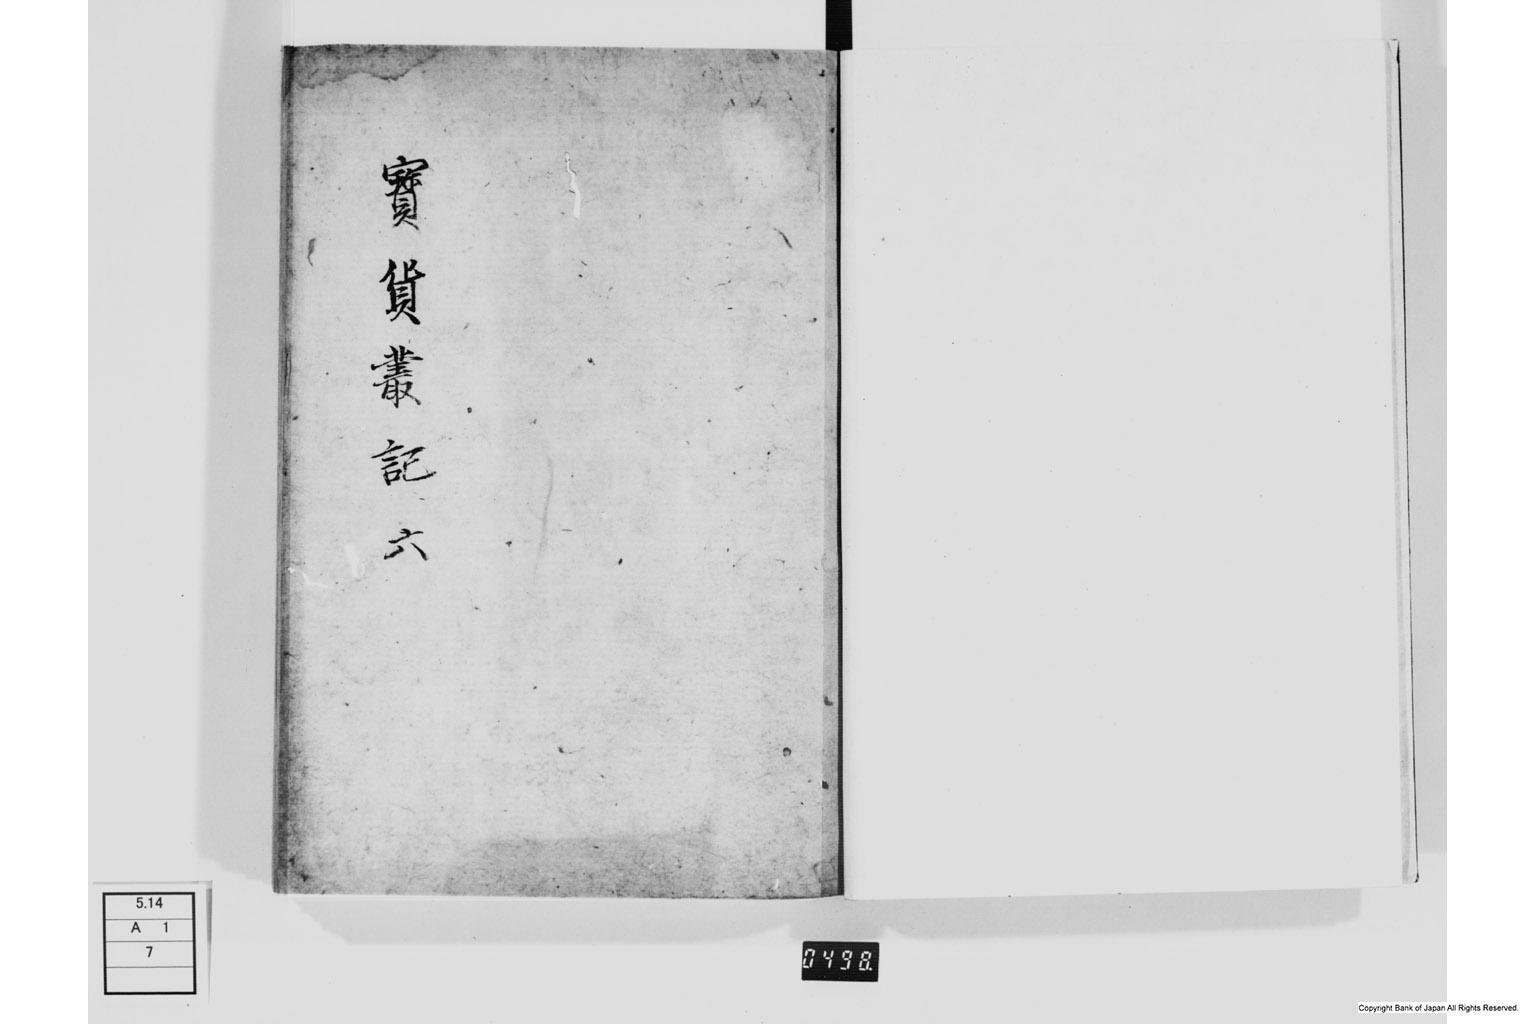 寶貨叢記 六
5.14
A 1
7
0498.
Copyright Bank of Japan All Rights Reserved.